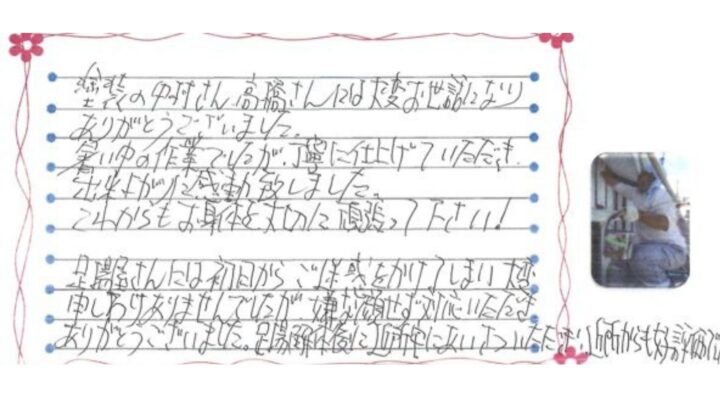 塗装の中村さん、高橋さんには大変お世話になり
ありがとうございました。
暑い中の作業でしたが、丁寧に仕上げていただき、
出来上がりに感動致しました。
これからもお身体を大切に頑張って下さい!
足場屋さんには初日からご迷惑をかけてしまい大変
申しわけありませんでしたが、嫌な顔せず対応いただき
ありがとうございました。足場解体後に近所にあいさついただき、近所からも好評価で